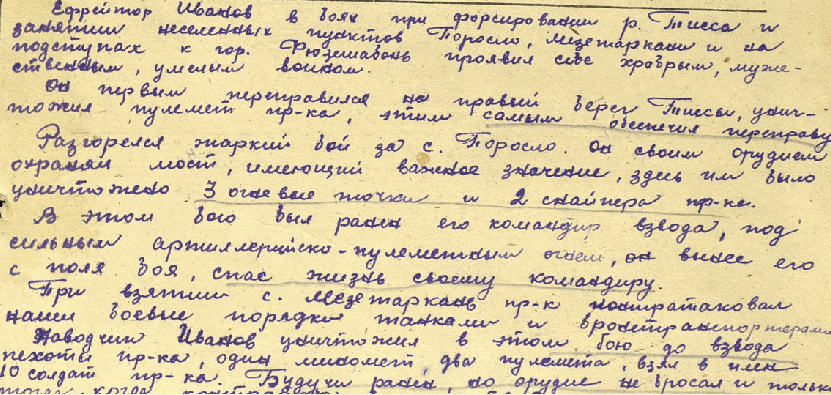 Ефрейтор Иванов в боях при форсировании р. Тисса и
занятии населенных пунктов Поросло, Мезетаркань и на
подступах к гор. Фюзешабонь проявил себя храбрым, муже-
ственным, умелым воином.
Он первым переправился на правый берег Тиссы, унич-
тожил пулемет пр-ка, этим самым обеспечил переправу
Разгорелся жаркий бой за с. Поросло. Он своим орудием
охранял мост, имеющий важное значение, здесь им было
уничтожено 3 огневые точки и 2 снайпера пр-ка.
В этом бою был ранен его командир взвода, под
сильным артиллерийско-пулеметным огнем, он вынес его
с поля боя, спас жизнь своему командиру.
При взятии с. Мезетаркань пр-к контратаковал
наши боевые порядки танками и бронетранспортерами
Наводчик Иванов уничтожил в этом бою до взвода
пехоты пр-ка, один миномет, два пулемета, взял в плен
10 солдат пр-ка. Будучи ранен, но орудие не бросал и только
тогда, когда